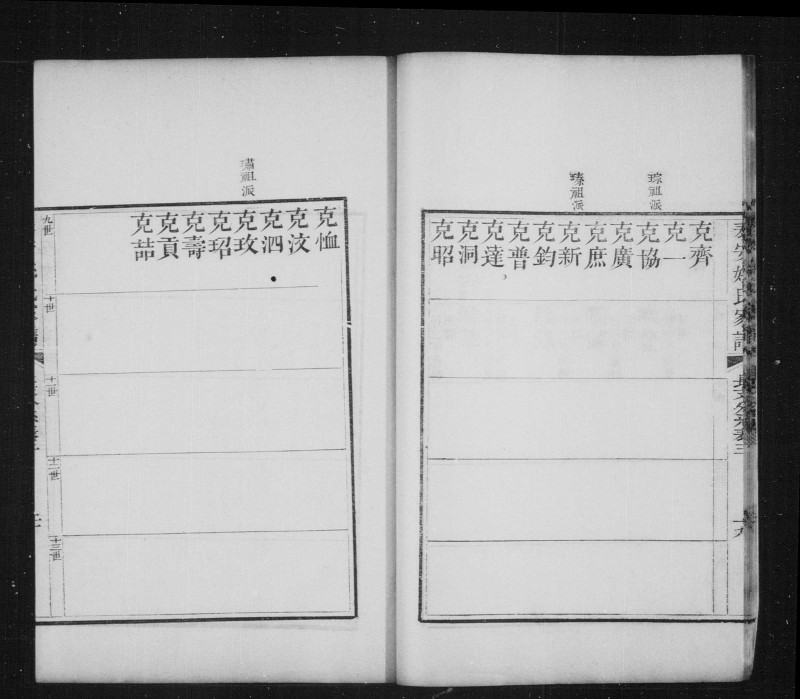 泰安姚氏家譜
十九
琮祖派
琫祖派
克齊
克一
克協
克廣
克庶
克新
克鈞
克普
克達
克洞
克昭
克恤
克汶
克泗
克玫
克玿
克壽
克貢
克喆
祖派
九世
十世
十一世
十二世
十三世